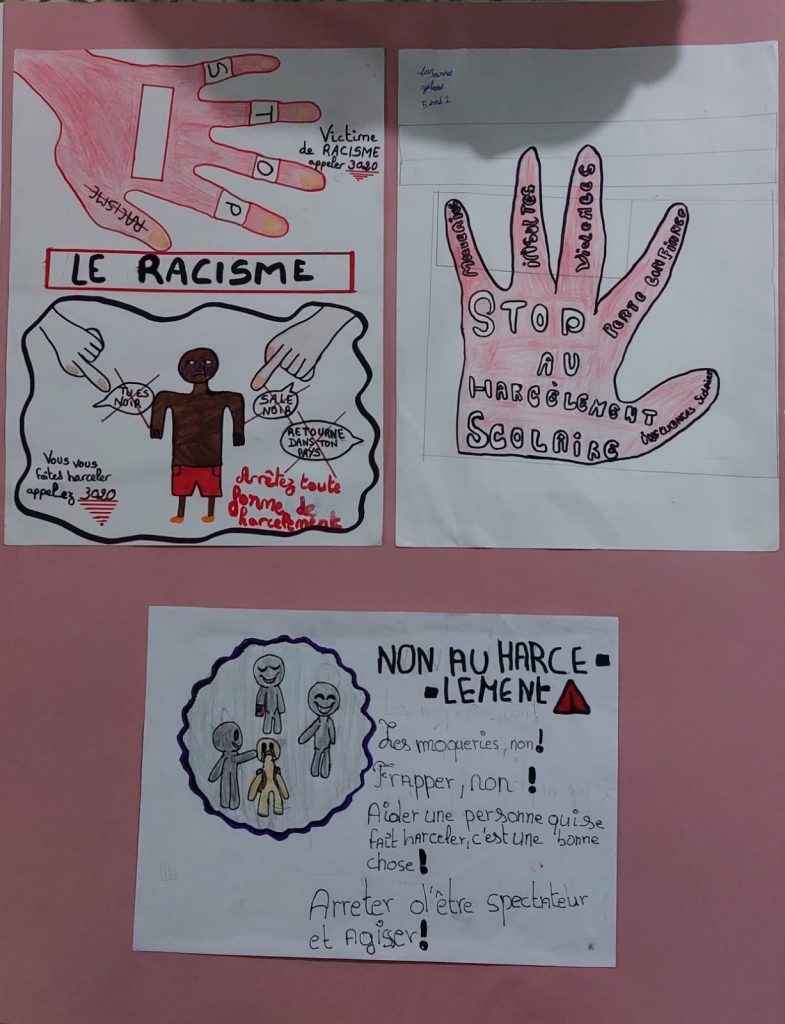 S
T
O
P
RACISME
Victime
de RACISME
appeler 3020
LE RACISME
TU ES
NOIR
SALE
NOIR
RETOURNE
DANS TON
PAYS
Vous vous
faites harceler
appelez 3020
Arrêtez toute
forme de
harcelement
5 end 2
MOQUERIES
INSULTES
VIOLENCES
PERTE CONFIANCE
STOP
AU
HARCÈLEMENT
SCOLAIRE
NON AU HARCE-
-LEMENT
Les moqueries, non!
Frapper, non !
Aider une personne qui se
fait harceler, c'est une bonne
chose!
Arreter d'être spectateur
et Agiser!